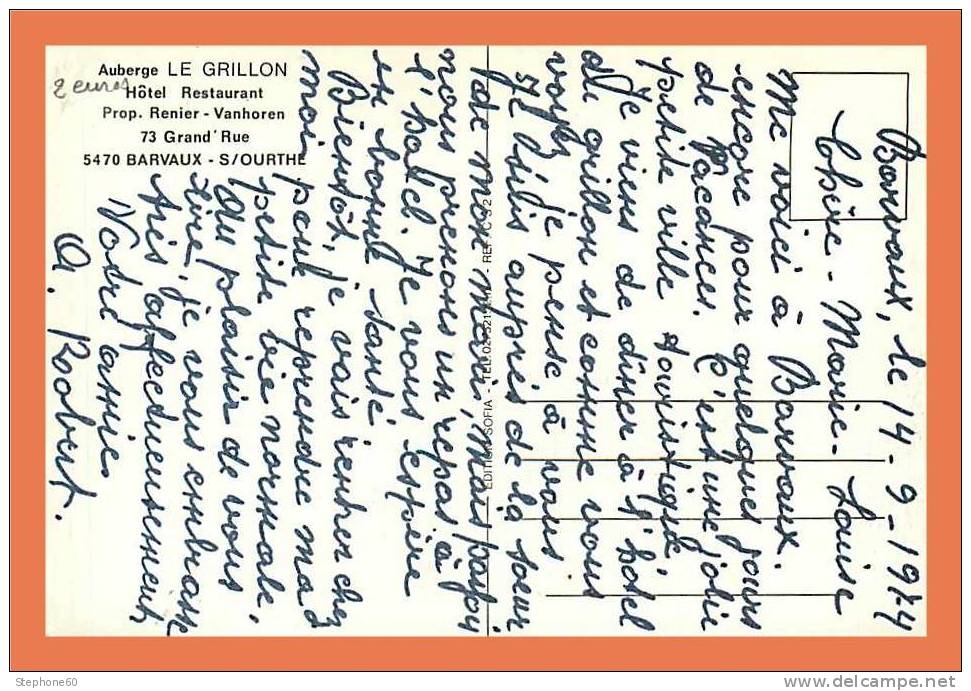 Auberge LE GRILLON
Hôtel Restaurant
Prop. Renier - Vanhoren
73 Grand'Rue
5470 BARVAUX - S/OURTHE
2 euros
Barvaux, le 14-9-1974
Chère Marie-Louise
Me voici à Barvaux.
encore pour quelques jours
de vacances. C'est une jolie
petite ville touristique.
Je viens de dîner à l'hotel
du grillon et comme vous
voyez je pense à vous
Je suis auprès de la soeur
de mon mari, mais
nous prenons un repas à
l'hotel. Je vous espère
en bonne santé.
Bientôt, je vais rentrer chez
moi pour reprendre ma
petite vie normale.
Au plaisir de vous
lire, je vous embrasse
très affectueusement,
Votre amie
A. Robert.
EDITIONS SOFIA - TEL. 02
Stephone60
www.delcampe.net